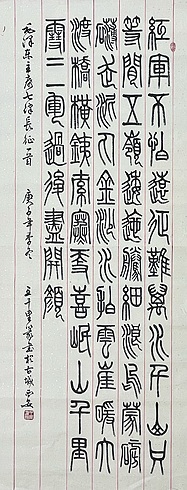 紅軍不怕遠征難萬水千山只
等閒五嶺逶迤騰細浪烏蒙磅
礴走泥丸金沙水拍雲崖暖大
渡橋橫鐵索寒更喜岷山千里
雪三軍過後盡開顏
毛澤東主席七律長征一首 庚子年冬 書於古城西安